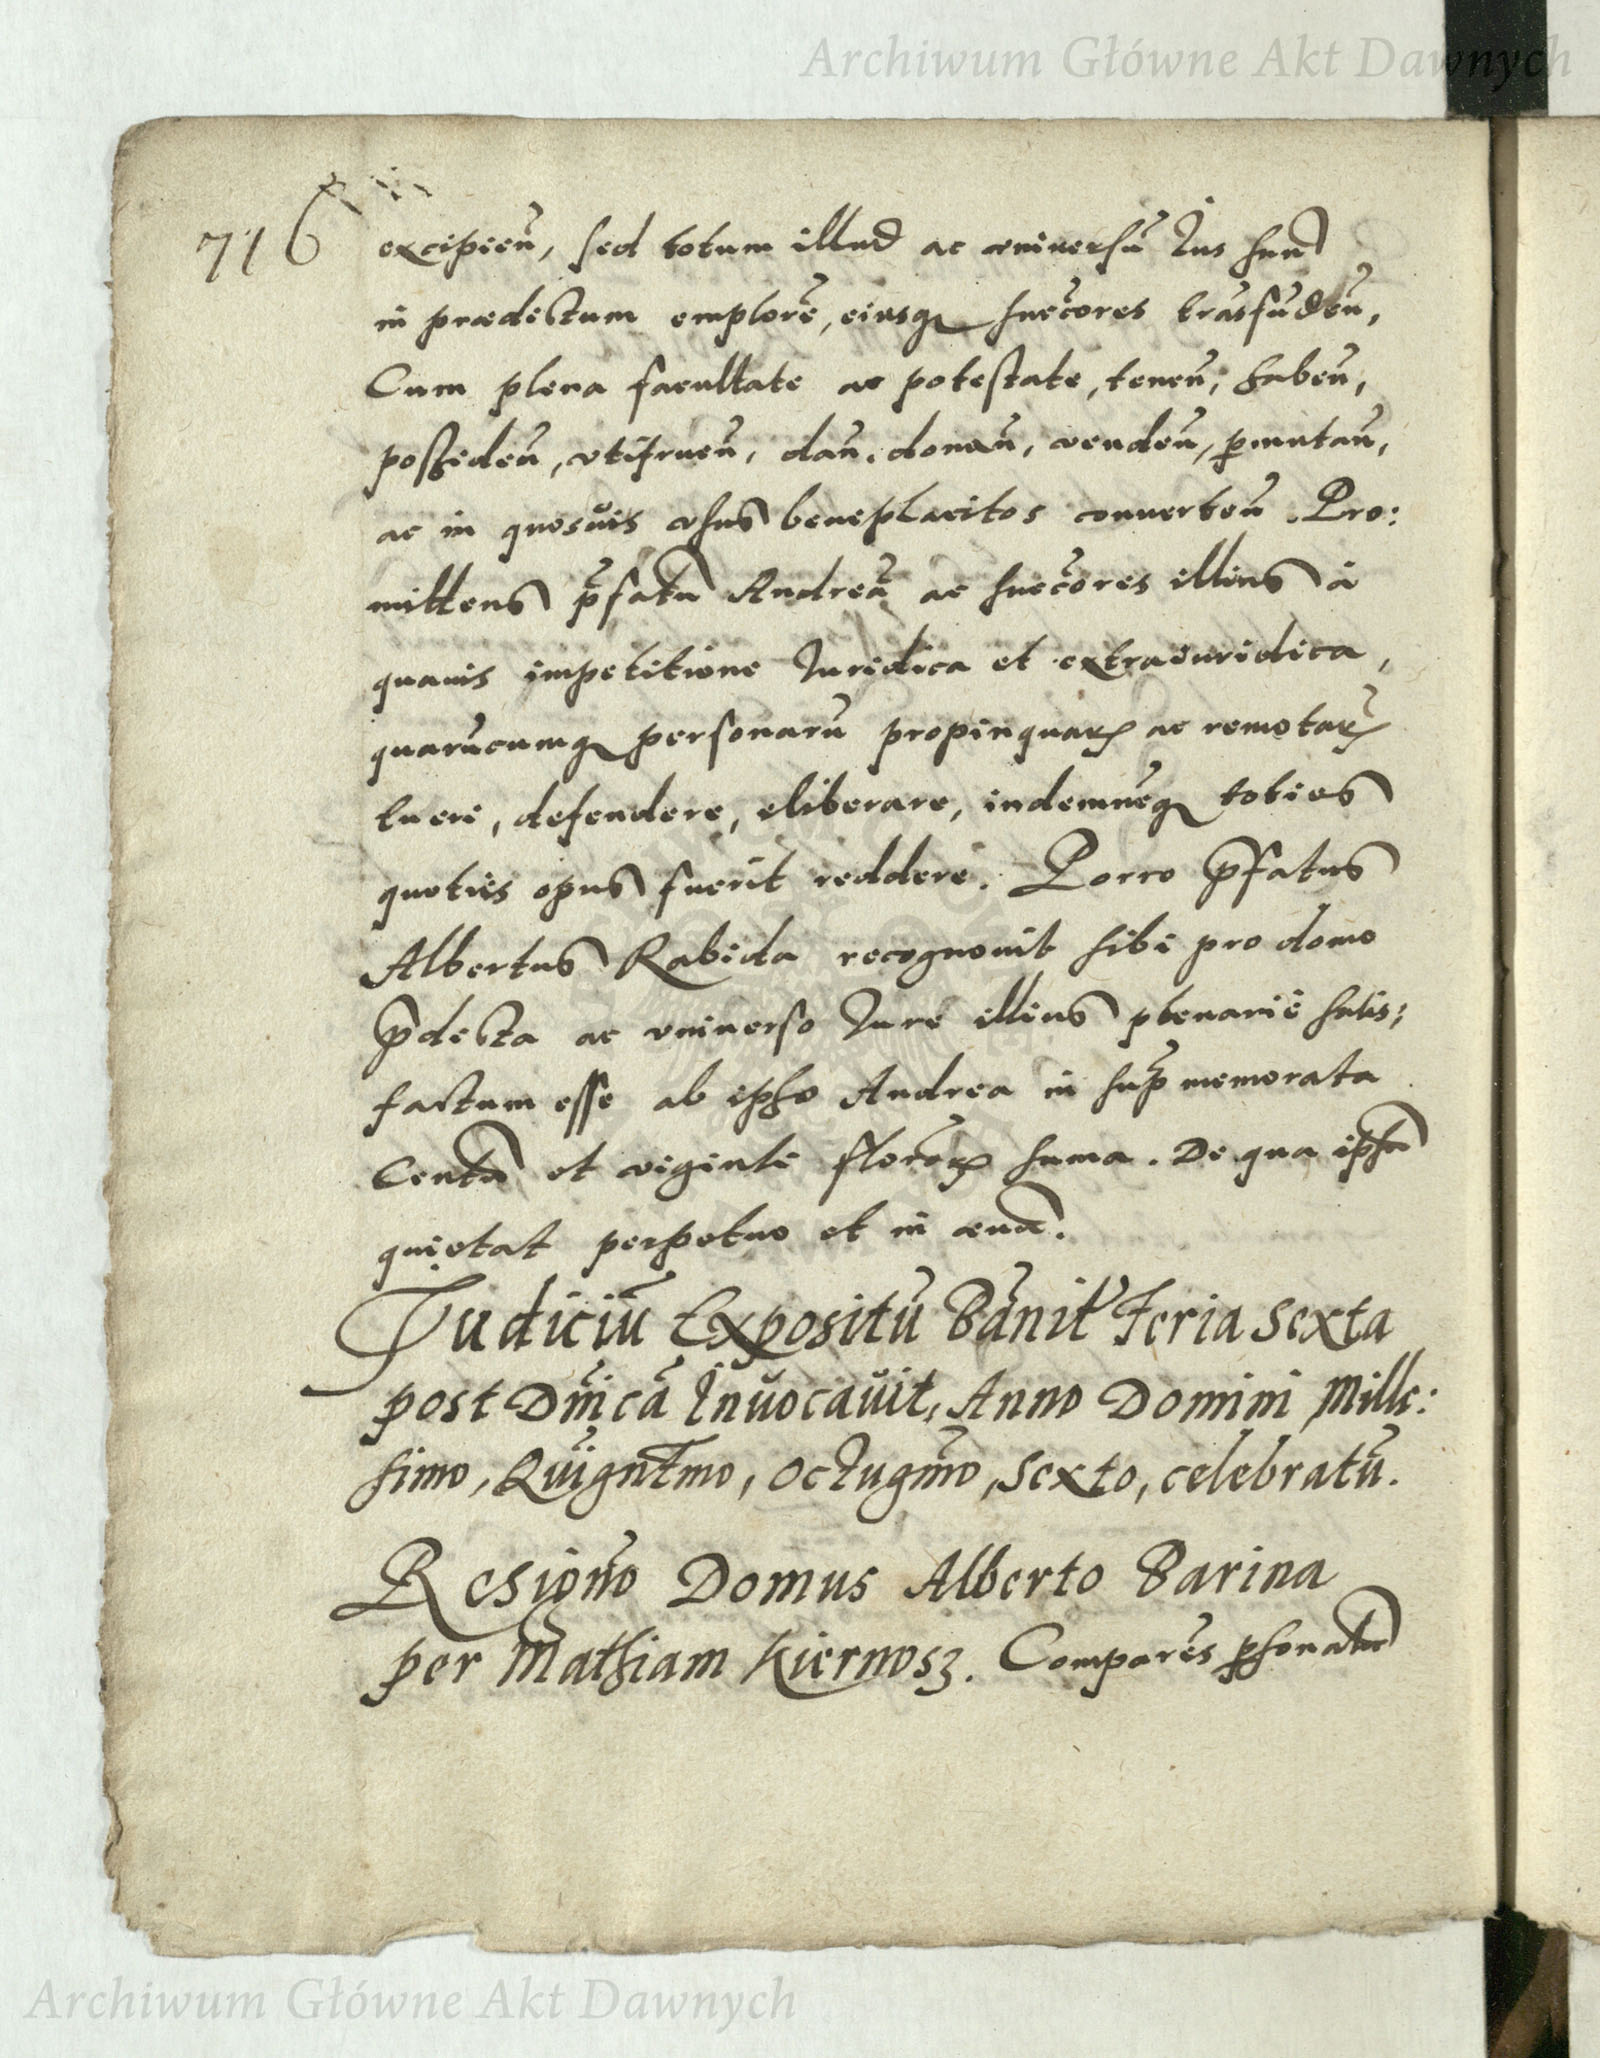 Archiwum Główne Akt Dawnych
716
excipieñ, sed totum illud ac vniversũ Ius suũ
in prædictum emptorẽ, eiusq succ̃ores trãsfudeñ,
Cum plena facultate ac potestate, teneñ, habeñ,
possideñ, vtifrueñ, dañ, donañ, vendeñ, p̱mutañ,
ac in quosvis vsus beneplacitos conuerteñ. Pro:
mittens p̃fatũ Andreã ac succ̃ores illius à
quavis impetitione Iuridica et extraiuridica,
quarũcumq personarũ propinquarꝝ ac remotarꝝ
tueri, defendere, eliberare, indemnẽq toties
quoties opus fuerit reddere. Porro p̃fatus
Albertus Rabida recognouit sibi pro domo
p̃dicta ac vniverso Iure illius plenarie satis:
factum esse ab ipso Andrea in sup̃memorata
Centũ et viginti florẽorꝝ suma. De qua ipsũ
quietat perpetuo et in æuũ.
Judiciũ Expositũ Bãnit' Feria Sexta
post Dñicã Invocavit, Anno Domini Mille:
simo, Quigñtmo, Octugm̃o, Sexto, celebratũ.
Resigño Domus Alberto Barina
per Mathiam Kiernosz. Comparẽs p̱sonatr̃
Archiwum Główne Akt Dawnych